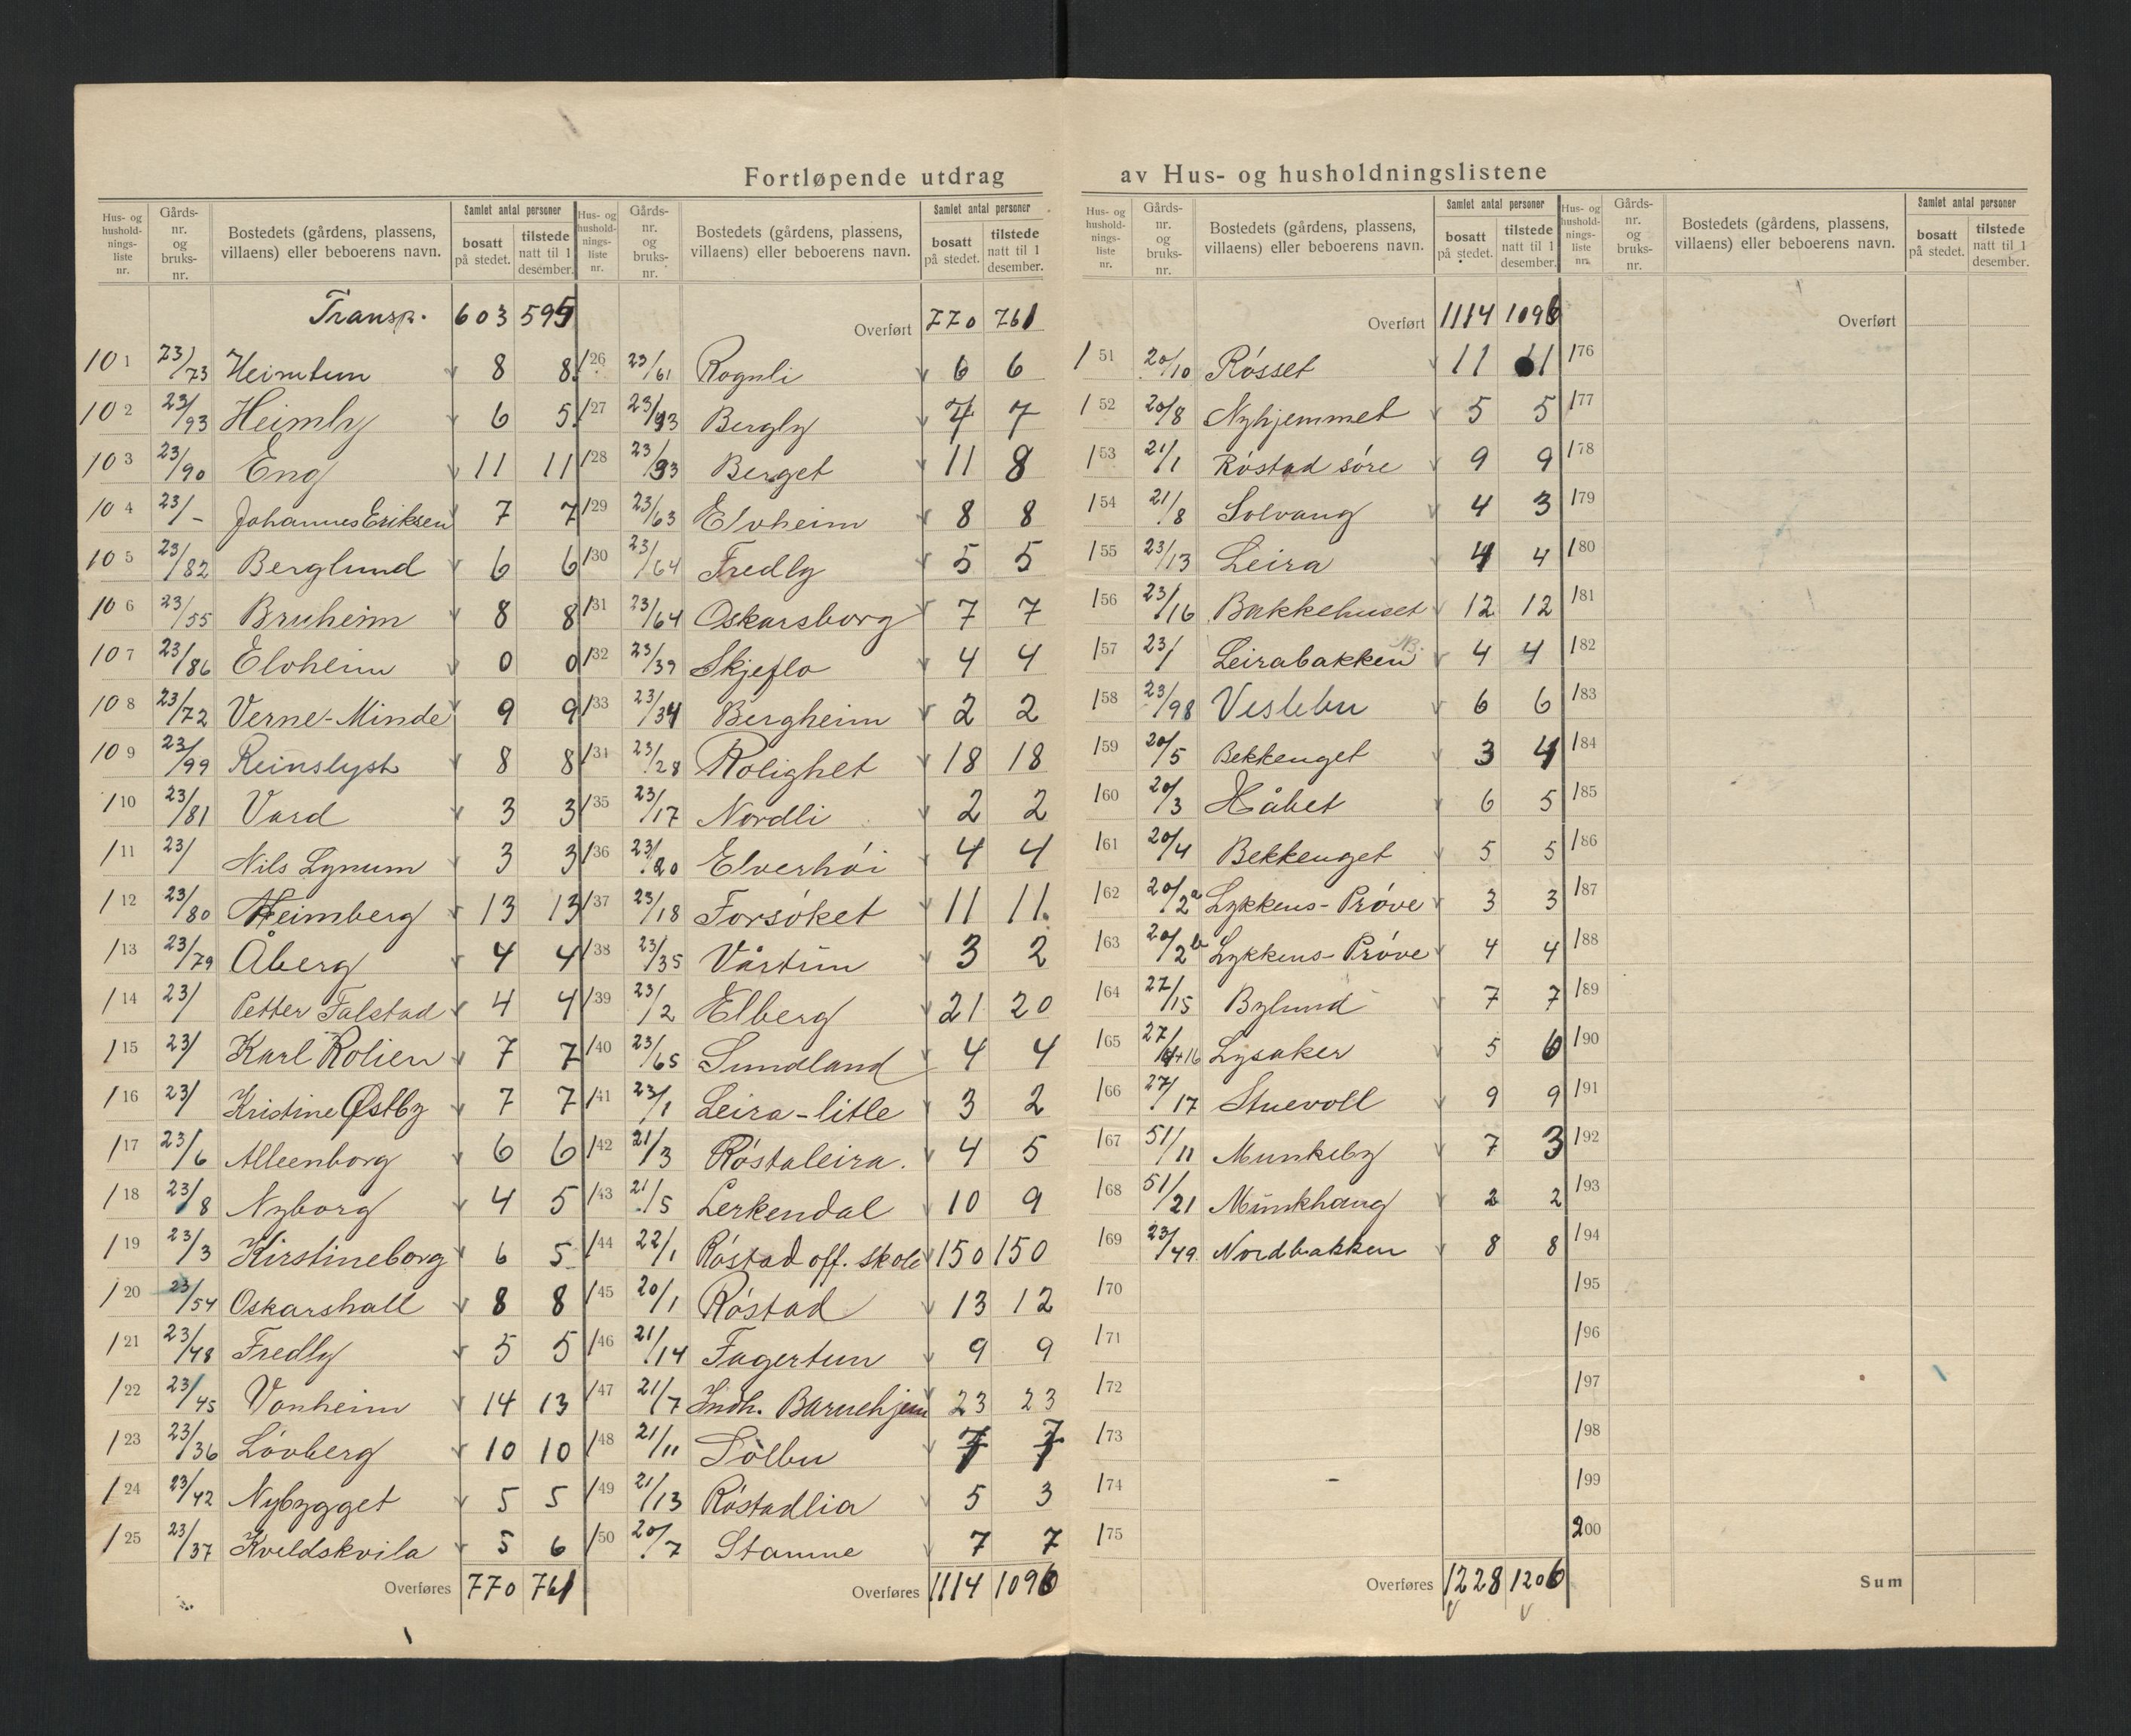 Fortløpende utdrag av Hus- og husholdningslistene
Hus- og hushold-nings-liste nr. | Gårds-nr. og bruks-nr. | Bostedets (gårdens, plassens, villaens) eller beboerens navn. | Samlet antal personer | bosatt på stedet. | tilstede natt til 1 desember.
Transp. 603 595
101 23/73 Heimtun 8 8
102 23/93 Heimly 6 5
103 23/90 Eng 11 11
104 23/- Johannes Eriksen 7 7
105 23/82 Berglund 6 6
106 23/55 Bruheim 8 8
107 23/86 Elvheim 0 0
108 23/72 Verne-Minde 9 9
109 23/99 Reinslyst 8 8
110 23/81 Vard 3 3
111 23/ Nils Lynum 3 3
112 23/80 Heimberg 13 13
113 23/79 Åberg 4 4
114 23/ Petter Falstad 4 4
115 23/ Karl Rolien 7 7
116 23/ Kristine Østby 7 7
117 23/6 Alleenborg 6 6
118 23/8 Nyborg 4 5
119 23/3 Kirstineborg 6 5
120 23/54 Oskarshall 8 8
121 23/48 Fredly 5 5
122 23/45 Vonheim 14 13
123 23/36 Lóvberg 10 10
124 23/42 Nybygget 5 5
125 23/37 Kveldskvila 5 6
Overføres 770 761
Hus- og hushold-nings-liste nr. | Gårds-nr. og bruks-nr. | Bostedets (gårdens, plassens, villaens) eller beboerens navn. | Samlet antal personer | bosatt på stedet. | tilstede natt til 1 desember.
Overført 770 761
126 23/61 Rognli 6 6
127 23/93 Bergly 7 7
128 23/93 Berget 11 8
129 23/63 Elvheim 8 8
130 23/64 Fredly 5 5
131 23/64 Oskarsborg 7 7
132 23/39 Skjeflo 4 4
133 23/34 Bergheim 2 2
134 23/28 Rolighet 18 18
135 23/17 Nordli 2 2
136 23/20 Elverhói 4 4
137 23/18 Forsóket 11 11.
138 23/35 Vårtun 3 2
139 23/2 Elberg 21 20
140 23/65 Sundland 4 4
141 23/1 Leira-litle 3 2
142 21/3 Róstaleira. 4 5
143 21/5 Lerkendal 10 9
144 22/1 Róstad off. skole 150 150
145 20/1 Róstad 13 12
146 21/14 Fagertun 9 9
147 21/7 Indh. Barnehjem 23 23
148 21/11 Sólbu 7 7
149 21/13 Róstadlia 5 3
150 20/7 Stamne 7 7
Overføres 1114 1096
Hus- og hushold-nings-liste nr. | Gårds-nr. og bruks-nr. | Bostedets (gårdens, plassens, villaens) eller beboerens navn. | Samlet antal personer | bosatt på stedet. | tilstede natt til 1 desember.
Overført 1114 1096
151 20/10 Rósset 11 11
152 20/8 Nyhjemmet 5 5
153 21/1 Róstad sóre 9 9
154 21/8 Solvang 4 3
155 23/13 Leira 4 4
156 23/16 Bakkehuset 12 12
157 23/ Leirabakken NB. 4 4
158 23/98 Veslebu 6 6
159 20/5 Bekkenget 3 4
160 20/3 Håbet 6 5
161 20/4 Bekkenget 5 5
162 20/2a Lykkens-Próve 3 3
163 20/2b Lykkens-Próve 4 4
164 27/15 Bylund 7 7
165 27/14+16 Lysaker 5 6
166 27/17 Stuevoll 9 9
167 51/11 Munkeby 7 3
168 51/21 Munkhaug 2 2
169 23/49 Nordbakken 8 8
170
171
172
173
174
175
Overføres 1228 1206
Hus- og hushold-nings-liste nr. | Gårds-nr. og bruks-nr. | Bostedets (gårdens, plassens, villaens) eller beboerens navn. | Samlet antal personer | bosatt på stedet. | tilstede natt til 1 desember.
Overført
176
177
178
179
180
181
182
183
184
185
186
187
188
189
190
191
192
193
194
195
196
197
198
199
200
Sum